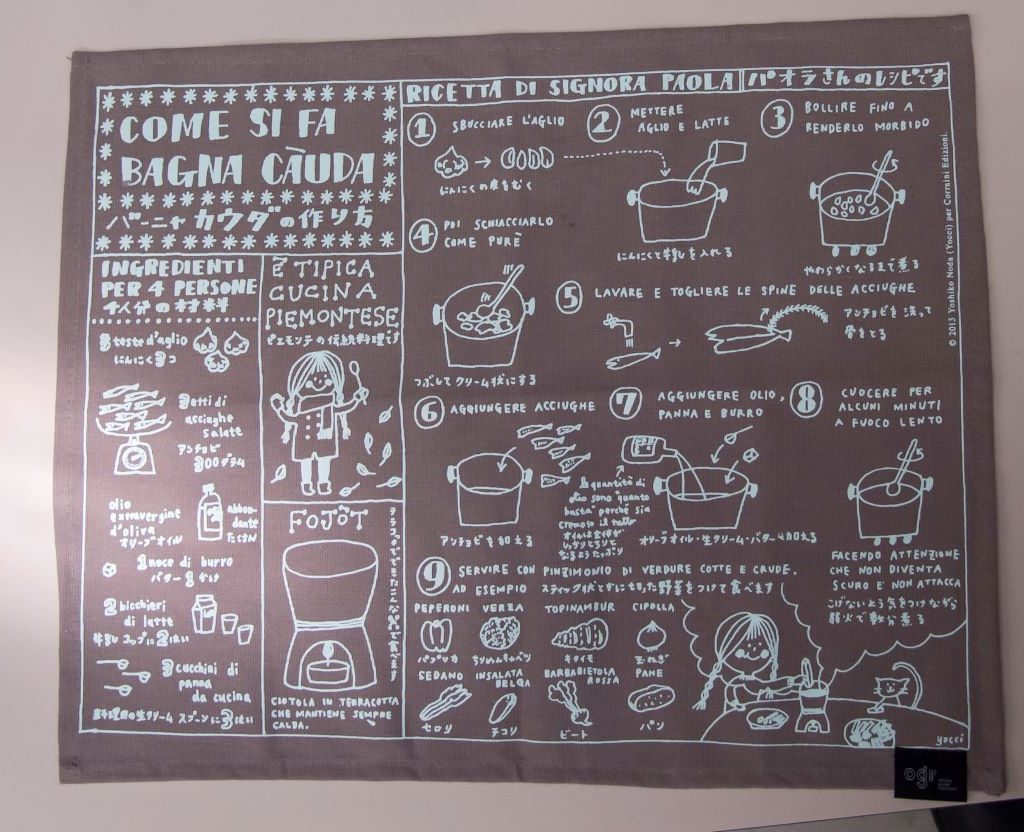 COME SI FA
BAGNA CÀUDA
バーニャカウダの作り方
INGREDIENTI
PER 4 PERSONE
4人分の材料
3 teste d'aglio
にんにく3コ
3 etti di
acciughe
salate
アンチョビ
300グラム
olio
extravergine
d'oliva
オリーブオイル
abbon-
dante
たくさん
1 noce di burro
バター1かけ
2 bicchieri
di latte
牛乳 コップに2はい
3 cucchini di
panna
da cucina
お料理用の生クリーム スプーンに3はい
È TIPICA
CUCINA
PIEMONTESE
ピエモンテの伝統料理です
FOJÓT
テラコッタでできたこんな器で食べます
CIOTOLA IN TERRACOTTA
CHE MANTIENE SEMPRE
CALDA.
RICETTA DI SIGNORA PAOLA パオラさんのレシピです
1 SBUCCIARE L'AGLIO
にんにくの皮をむく
2 METTERE
AGLIO E LATTE
にんにくと牛乳を入れる
3 BOLLIRE FINO A
RENDERLO MORBIDO
やわらかくなるまで煮る
4 POI SCHIACCIARLO
COME PURÈ
つぶしてクリーム状にする
5 LAVARE E TOGLIERE LE SPINE DELLE ACCIUGHE
アンチョビを洗って
骨をとる
6 AGGIUNGERE ACCIUGHE
アンチョビを加える
7 AGGIUNGERE OLIO,
PANNA E BURRO
la quantità di
olio sono "quanto
basta" perché sia
cremoso il tutto
オイルは全体が
しっとりとろりと
なるようたっぷり
オリーブオイル・生クリーム・バターを加える
8 CUOCERE PER
ALCUNI MINUTI
A FUOCO LENTO
FACENDO ATTENZIONE
CHE NON DIVENTA
SCURO E NON ATTACCA
こげないよう気をつけながら
弱火で数分煮る
9 SERVIRE CON PINZIMONIO DI VERDURE COTTE E CRUDE.
AD ESEMPIO スティック状などに切った野菜をつけて食べます
PEPERONI VERZA TOPINAMBUR CIPOLLA
パプリカ ちりめんキャベツ キクイモ 玉ねぎ
SEDANO INSALATA BELGA BARBABIETOLA ROSSA PANE
セロリ チコリ ビート パン
yocci
© 2013 Yoshiko Noda (Yocci) per Corraini Edizioni.
ogr